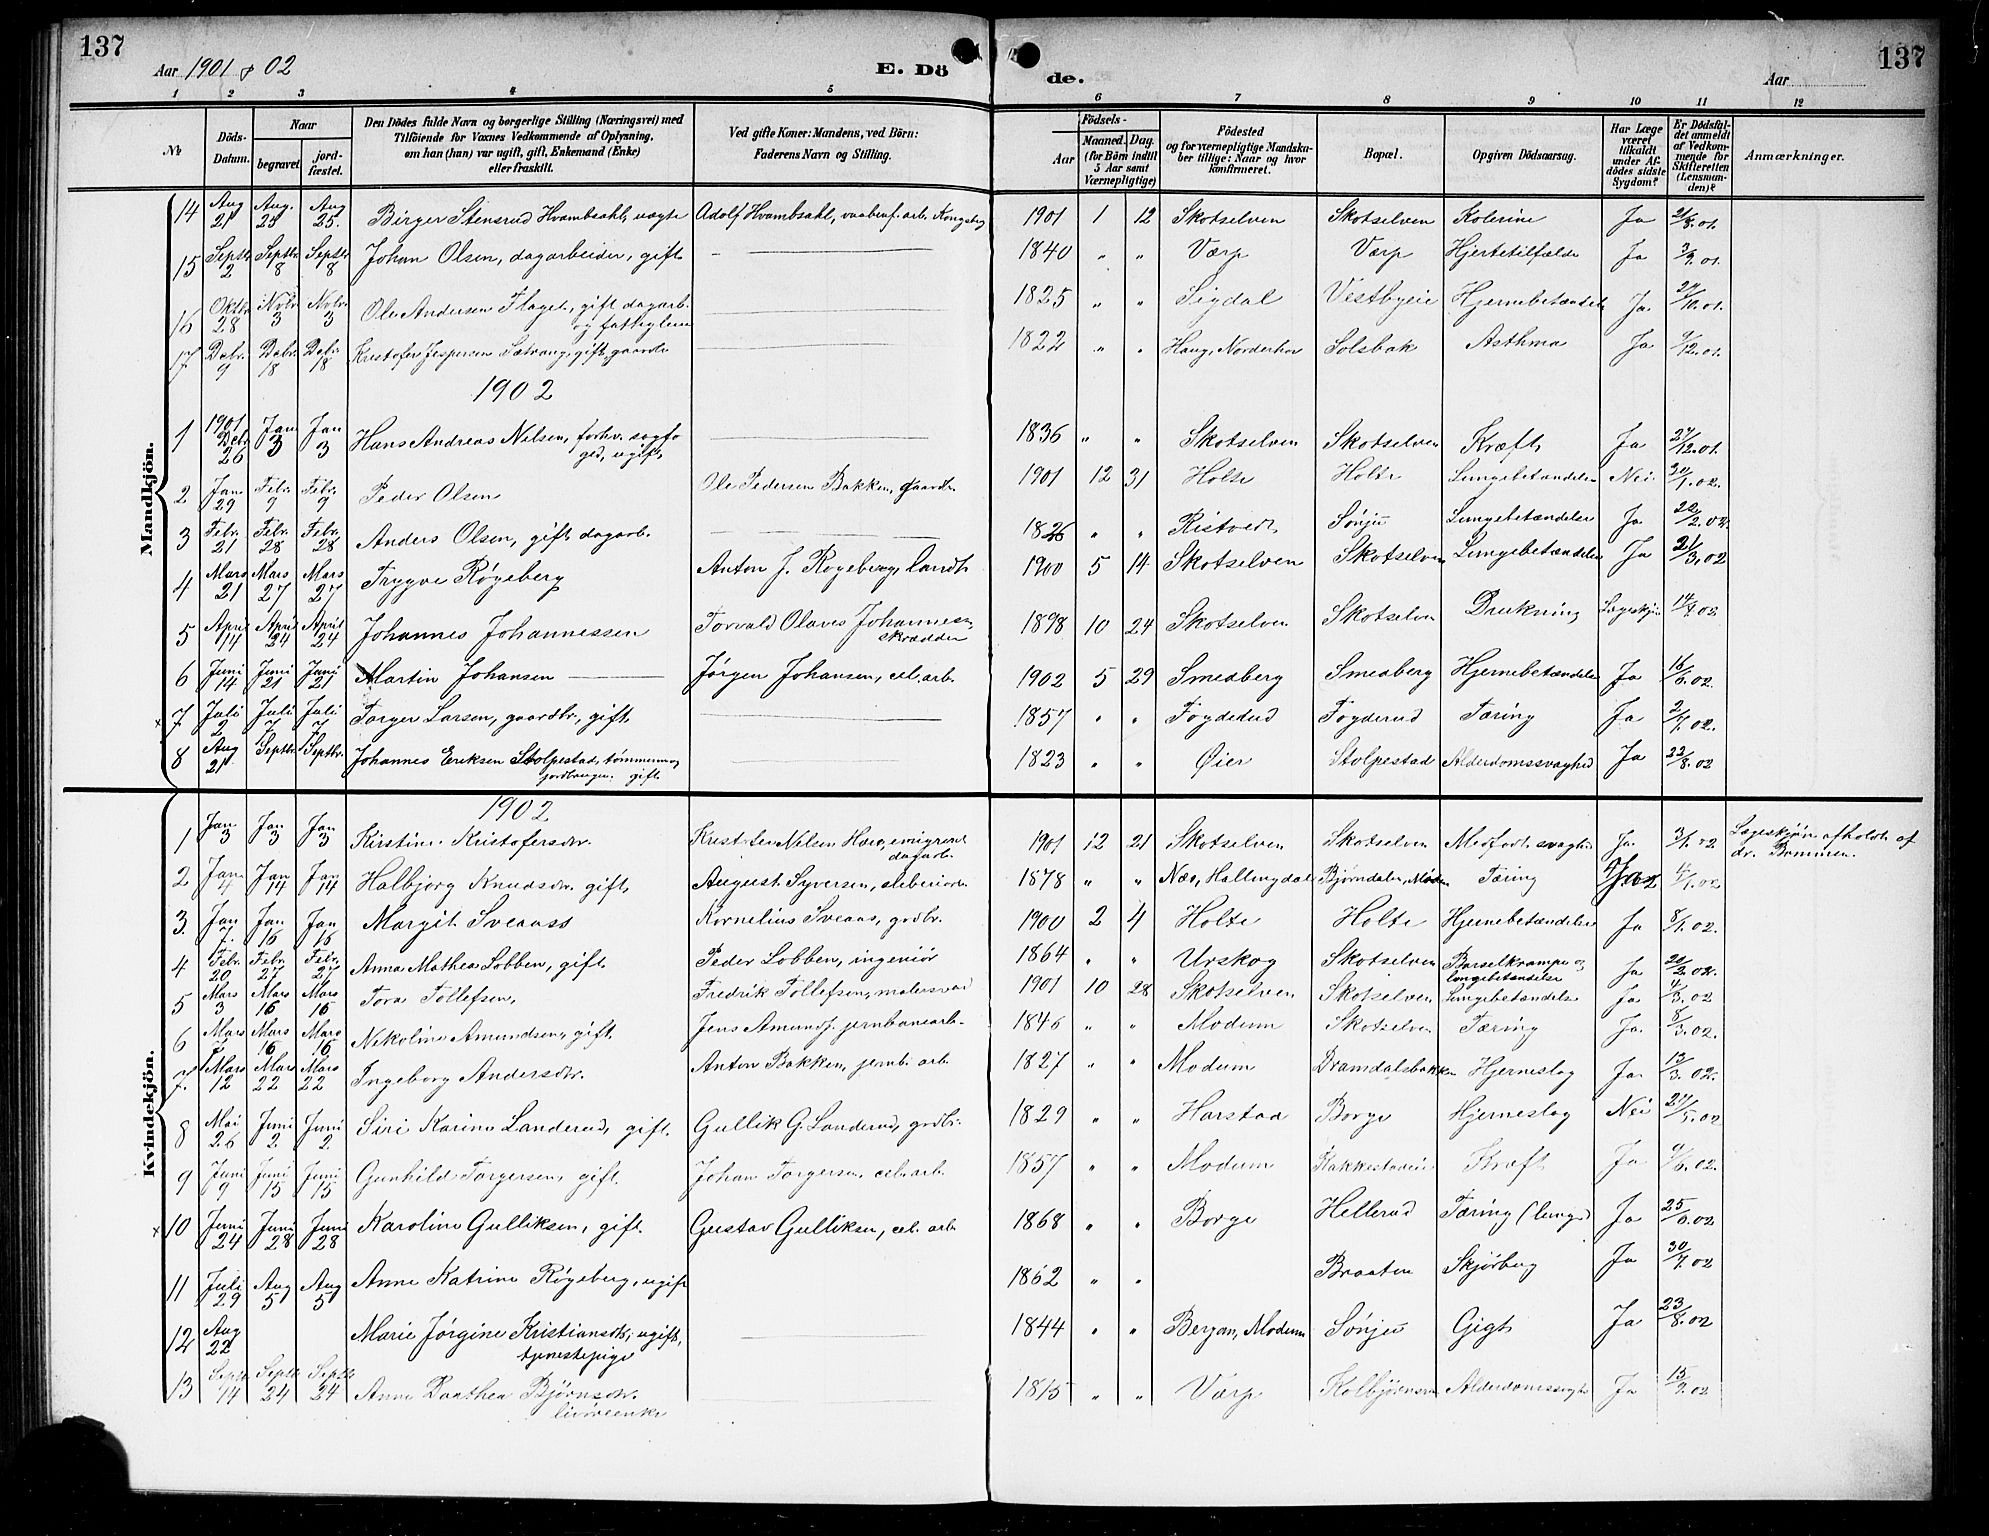 137
137
Aar 1901 & 02
E. Dö
de.
Aar
1 2 3 4 5 6 7 8 9 10 11 12
№
Döds-Datum.
Naar
begravet
jordfæstet.
Den Dödes fulde Navn og borgerlige Stilling (Næringsvei) med
Tilföiende for Voxnes Vedkommende af Oplysning,
om han (hun) var ugift, gift, Enkemand (Enke)
eller fraskilt.
Ved gifte Koner: Mandens, ved Börn:
Faderens Navn og Stilling.
Födsels-
Aar
Maaned. Dag.
(for Börn indtil
5 Aar samt
Værnepligtige)
Födested
og for værnepligtige Mandskaber tillige: Naar og hvor
konfirmeret.
Bopæl.
Opgiven Dödsaarsag.
Har Læge været tilkaldt under Afdödes sidste Sygdom?
Er Dödsfaldet anmeldt af Vedkommende for Skifteretten (Lensmanden)?
Anmærkninger.
Mandkjön.
14 Aug 21 Aug. 25 Aug 25. Birger Stensrud Hvambsahl, uægte Adolf Hvambsahl, vaabenf. arb. Kongsberg 1901 1 12 Skotselven Skotselven Kolerine Ja 21/8.01.
15 Septbr 2 Septbr 8 Septbr 8 Johan Olsen, dagarbeider, gift 1840 " " Værp Værp Hjertetilfælde Ja 3/9.01.
16 Oktbr 28 Novbr 3 Novbr 3 Ole Andersen Flaget, gift dagarb. 1825 " " Sigdal Vestbyeie Hjernebetændelse Ja. 29/10.01.
17. Debr. 9 Debr. 18 Debr. 18 Kristofer Jespersen Sætrang, gift, gaardbr 1822 " " Haug, Norderhov Solsbak Asthma Ja 9/12.01.
1902
1 1901 Debr 26 Jan 3 Jan 3 Hans Andreas Nilsen, forhv. sagfoged, ugift, 1836 " " Skotselven Skotselven Kræft Ja 27/12.01.
2 Jan 29 Febr 9 Febr 9 Peder Olsen Ole Pedersen Bakken, gaardbr. 1901 12 31 Holte Holte Lungebetændelse Nei 30/1.02.
3 Febr. 21 Febr 28 Febr. 28 Anders Olsen, gift dagarb. 1826 " " Ristvedt Sönju Lungebetændelse Ja 22/2.02.
4 Mars 21 Mars 27 Mars 27 Trygve Røgeberg Anton J. Røgeberg, landh. 1900 5 14 Skotselven Skotselven Lungebetændelse Ja 21/3.02
5 April 14 April 24 April 24 Johannes Johannessen Torvald Olaves Johannesen skrædder 1898 10 24 Skotselven Skotselven Drukning Lægeskjön 14/4.02.
6 Juni 14 Juni 21 Juni 21 Martin Johansen Jørgen Johansen, cel. arb. 1902 5 29 Smedberg Smedberg Hjernebetændelse Ja 16/6.02.
× 7. Juli 2 Juli 7 Juli 7 Torger Larsen, gaardbr., gift 1857 " " Fogderud Fogderud Tæring Ja 2/7.02.
8 Aug 21 Septbr. Septbr. Johannes Eriksen Stolpestad, tømmermand gift 1823 " " Øier Stolpestad Alderdomssvaghed Ja 22/8.02
Kvindekjön.
1902
1 Jan 3 Jan 3 Jan 3 Kirstine Kristofersdtr. Nilsen emigrend dagarb. 1901 12 21 Skotselven Skotselven Medfødt svaghed Ja. 3/1.02 Lægeskjön afholdt af dr. Bommen.
2 Jan 4 Jan 14 Jan 14 Halbjørg Knudsdtr. gift, August Syversen, sliberiarb. 1878 " " Næs, Hallingdal Bjørndalen, Modum Tæring Ja 4/1.02
3. Jan 7. Jan 16 Jan 16 Margit Sveaass Kornelius Sveaas, grdbr. 1900 2 4 Holte Holte Hjernebetændelse Ja 8/1.02.
4 Febr. 20 Febr 27 Febr. 27 Anna Mathea Lobben, gift Peder Lobben, ingeniör 1864 " " Urskog Skotselven Barselkrampe og lungebetændelse Ja 21/2.02.
5 Mars 3 Mars 16 Mars 16 Tora Tollefsen, Fredrik Tollefsen, 1901 10 28 Skotselven Skotselven Lungebetændelse Ja 4/3.02
6 Mars 7 Mars 16 Mars 16 Nikoline Amundsen, gift Jens Amunds. jernbanearb. 1846 " " Modum Skotselven Tæring Ja. 8/3.02.
7. Mars 12 Mars 22 Mars 22 Ingeborg Andersdtr. Anton Bakken, jernb. arb 1827 " " Modum Dramdalsbakken Hjerneslag Ja. 12/3.02.
8 Mai 26 Juni 2. Juni 2. Siri Karine Landerud, gift Gullik G. Landerud, grdbr. 1829 " " Harstad Borge Hjerneslag Nei 27/5.02
9 Juni 9 Juni 15 Juni 15 Gunhild Torgersen, gift Johan Torgersen, cel. arb. 1857 " " Modum Kræft Ja 9/6.02.
× 10 Juni 24 Juni 28 Juni 28 Karoline Gulliksen, gift Gustav Gulliksen, cel. arb 1868 " " Borge Hellerud Tæring (lunge) Ja 25/6.02
11 Juli 29 Aug 5 Aug 5 Anne Katrine Røgeberg, ugift 1862 " " Braaten Skjørbug Ja 30/7.02
12 Aug 22 Marie Jørgine Kristiansdtr, ugift, tjenestepige 1844 " " Bergan, Modum Sönju Gigt Ja 23/8.02
13 Septbr 14 Septbr 24 Septbr 24 Anne Dorthea Bjørnsdtr. livöreenke 1815 " " Værp Kolbjørnsrud Alderdomssvagh. Ja 15/9.02